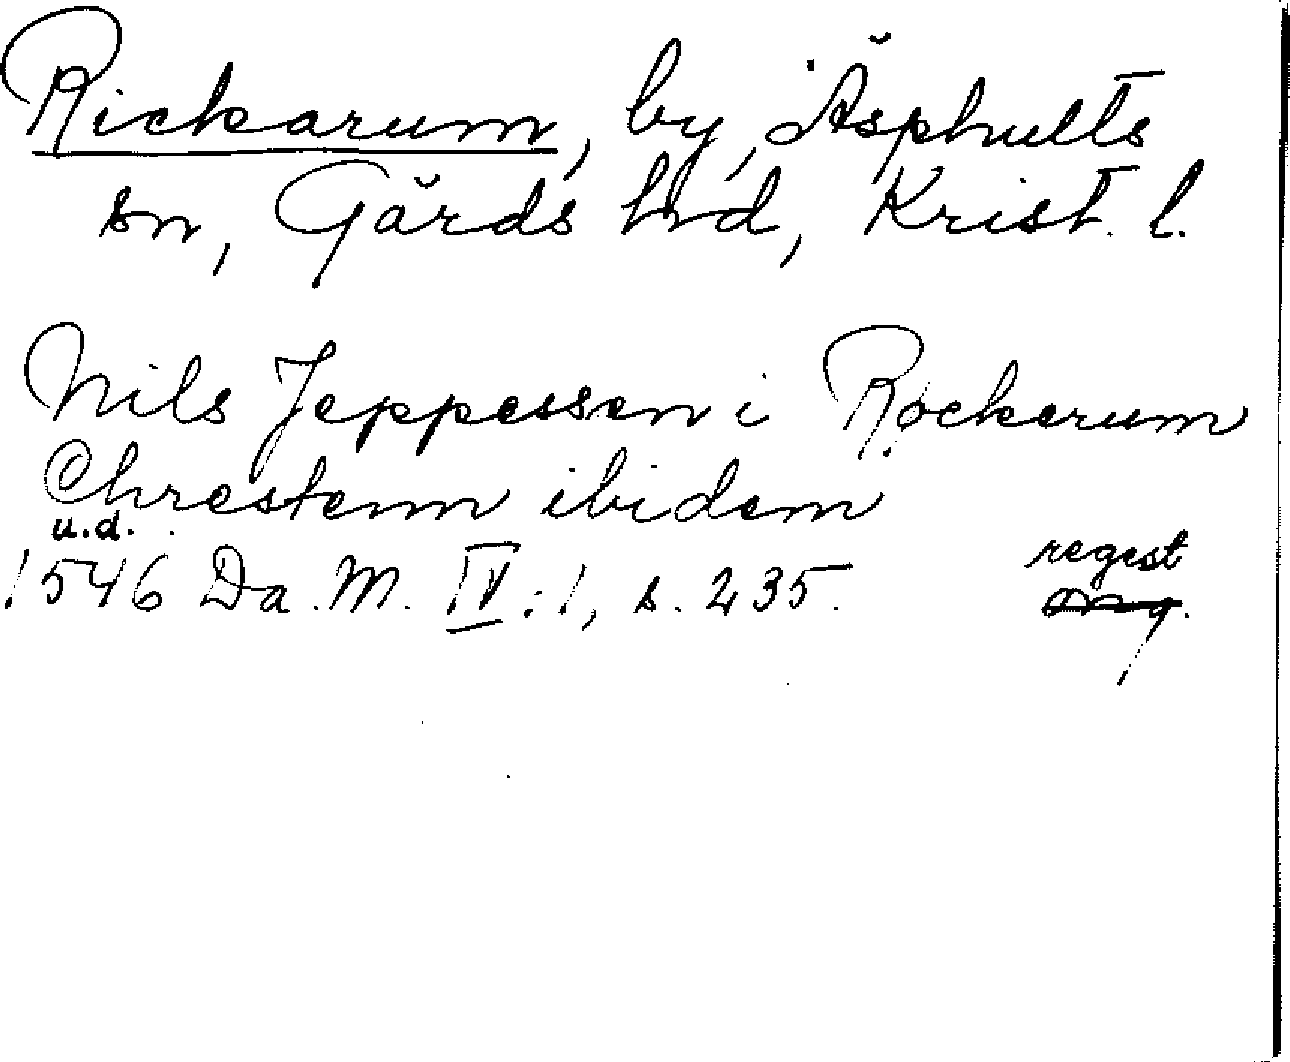 Rickarum, by, Äsphults
sn, Gärds hrd, Krist. l.
Nils Jeppessen i Rockerum
Chrestenn ibidem
u.d.
1546 Da. M. IV:1, s. 235. regest